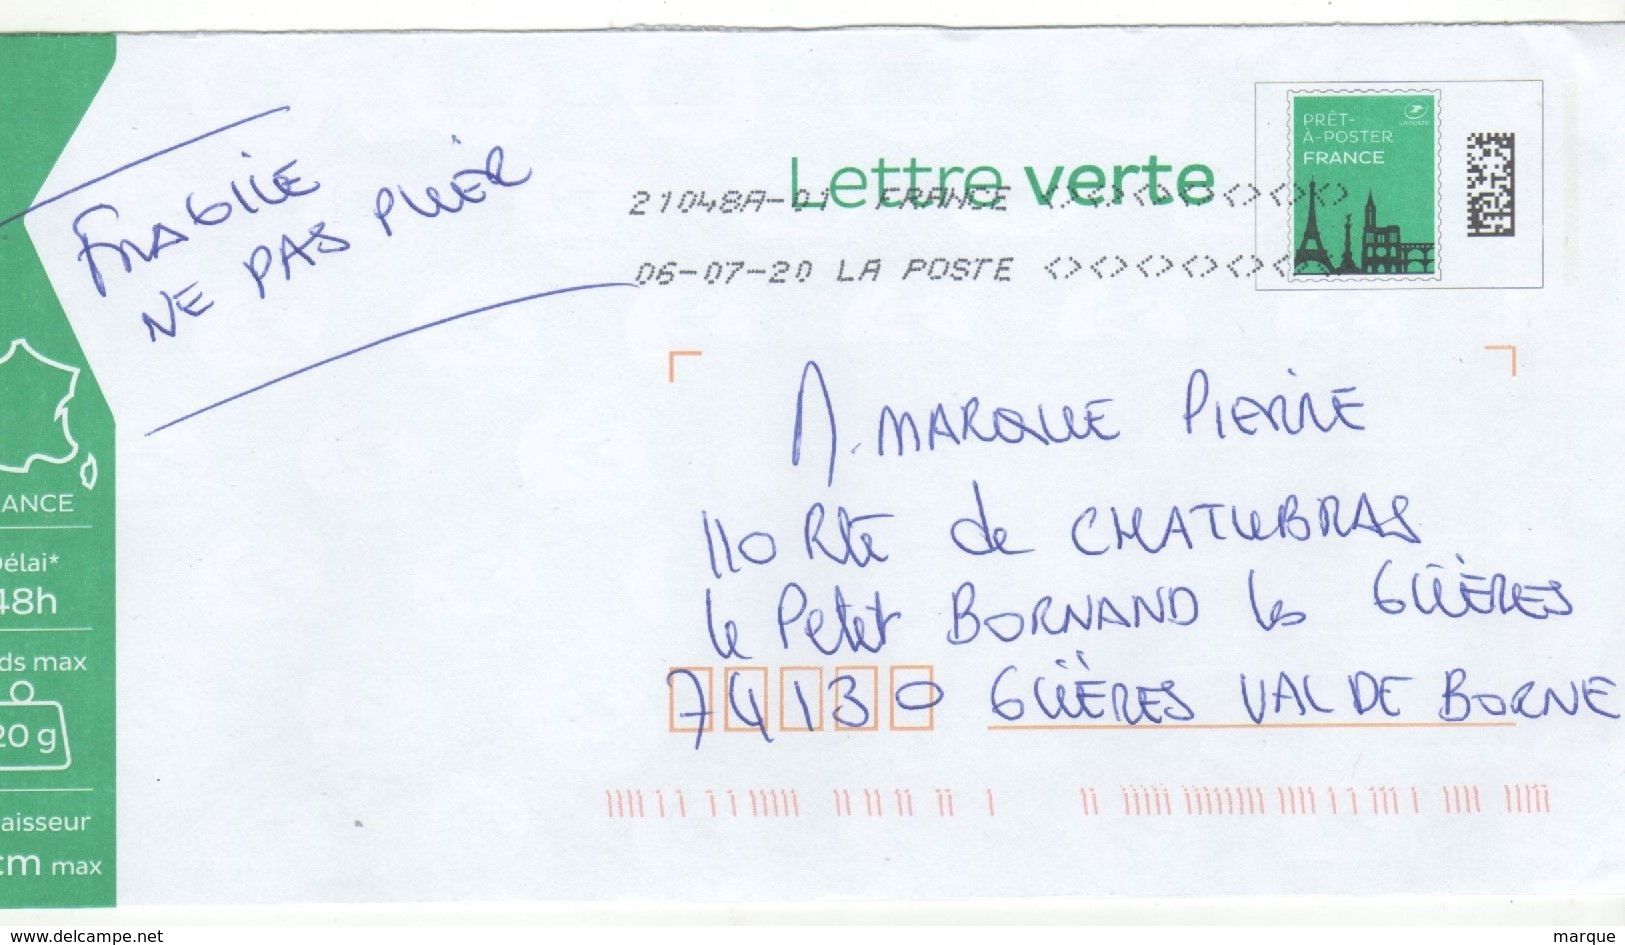 FRAGILE
NE PAS PLIER
Lettre verte
PRÊT-
À-POSTER
FRANCE
LA POSTE
21048A-01 FRANCE <><><><><><><>
06-07-20 LA POSTE <><><><><><>
M. MARQUE PIERRE
110 Rte de CHATUBRAS
le Petit BORNAND les GLIÈRES
74130 GLIÈRES VAL DE BORNE
ANCE
Délai*
48h
ds max
20 g
aisseur
cm max
www.delcampe.net
marque